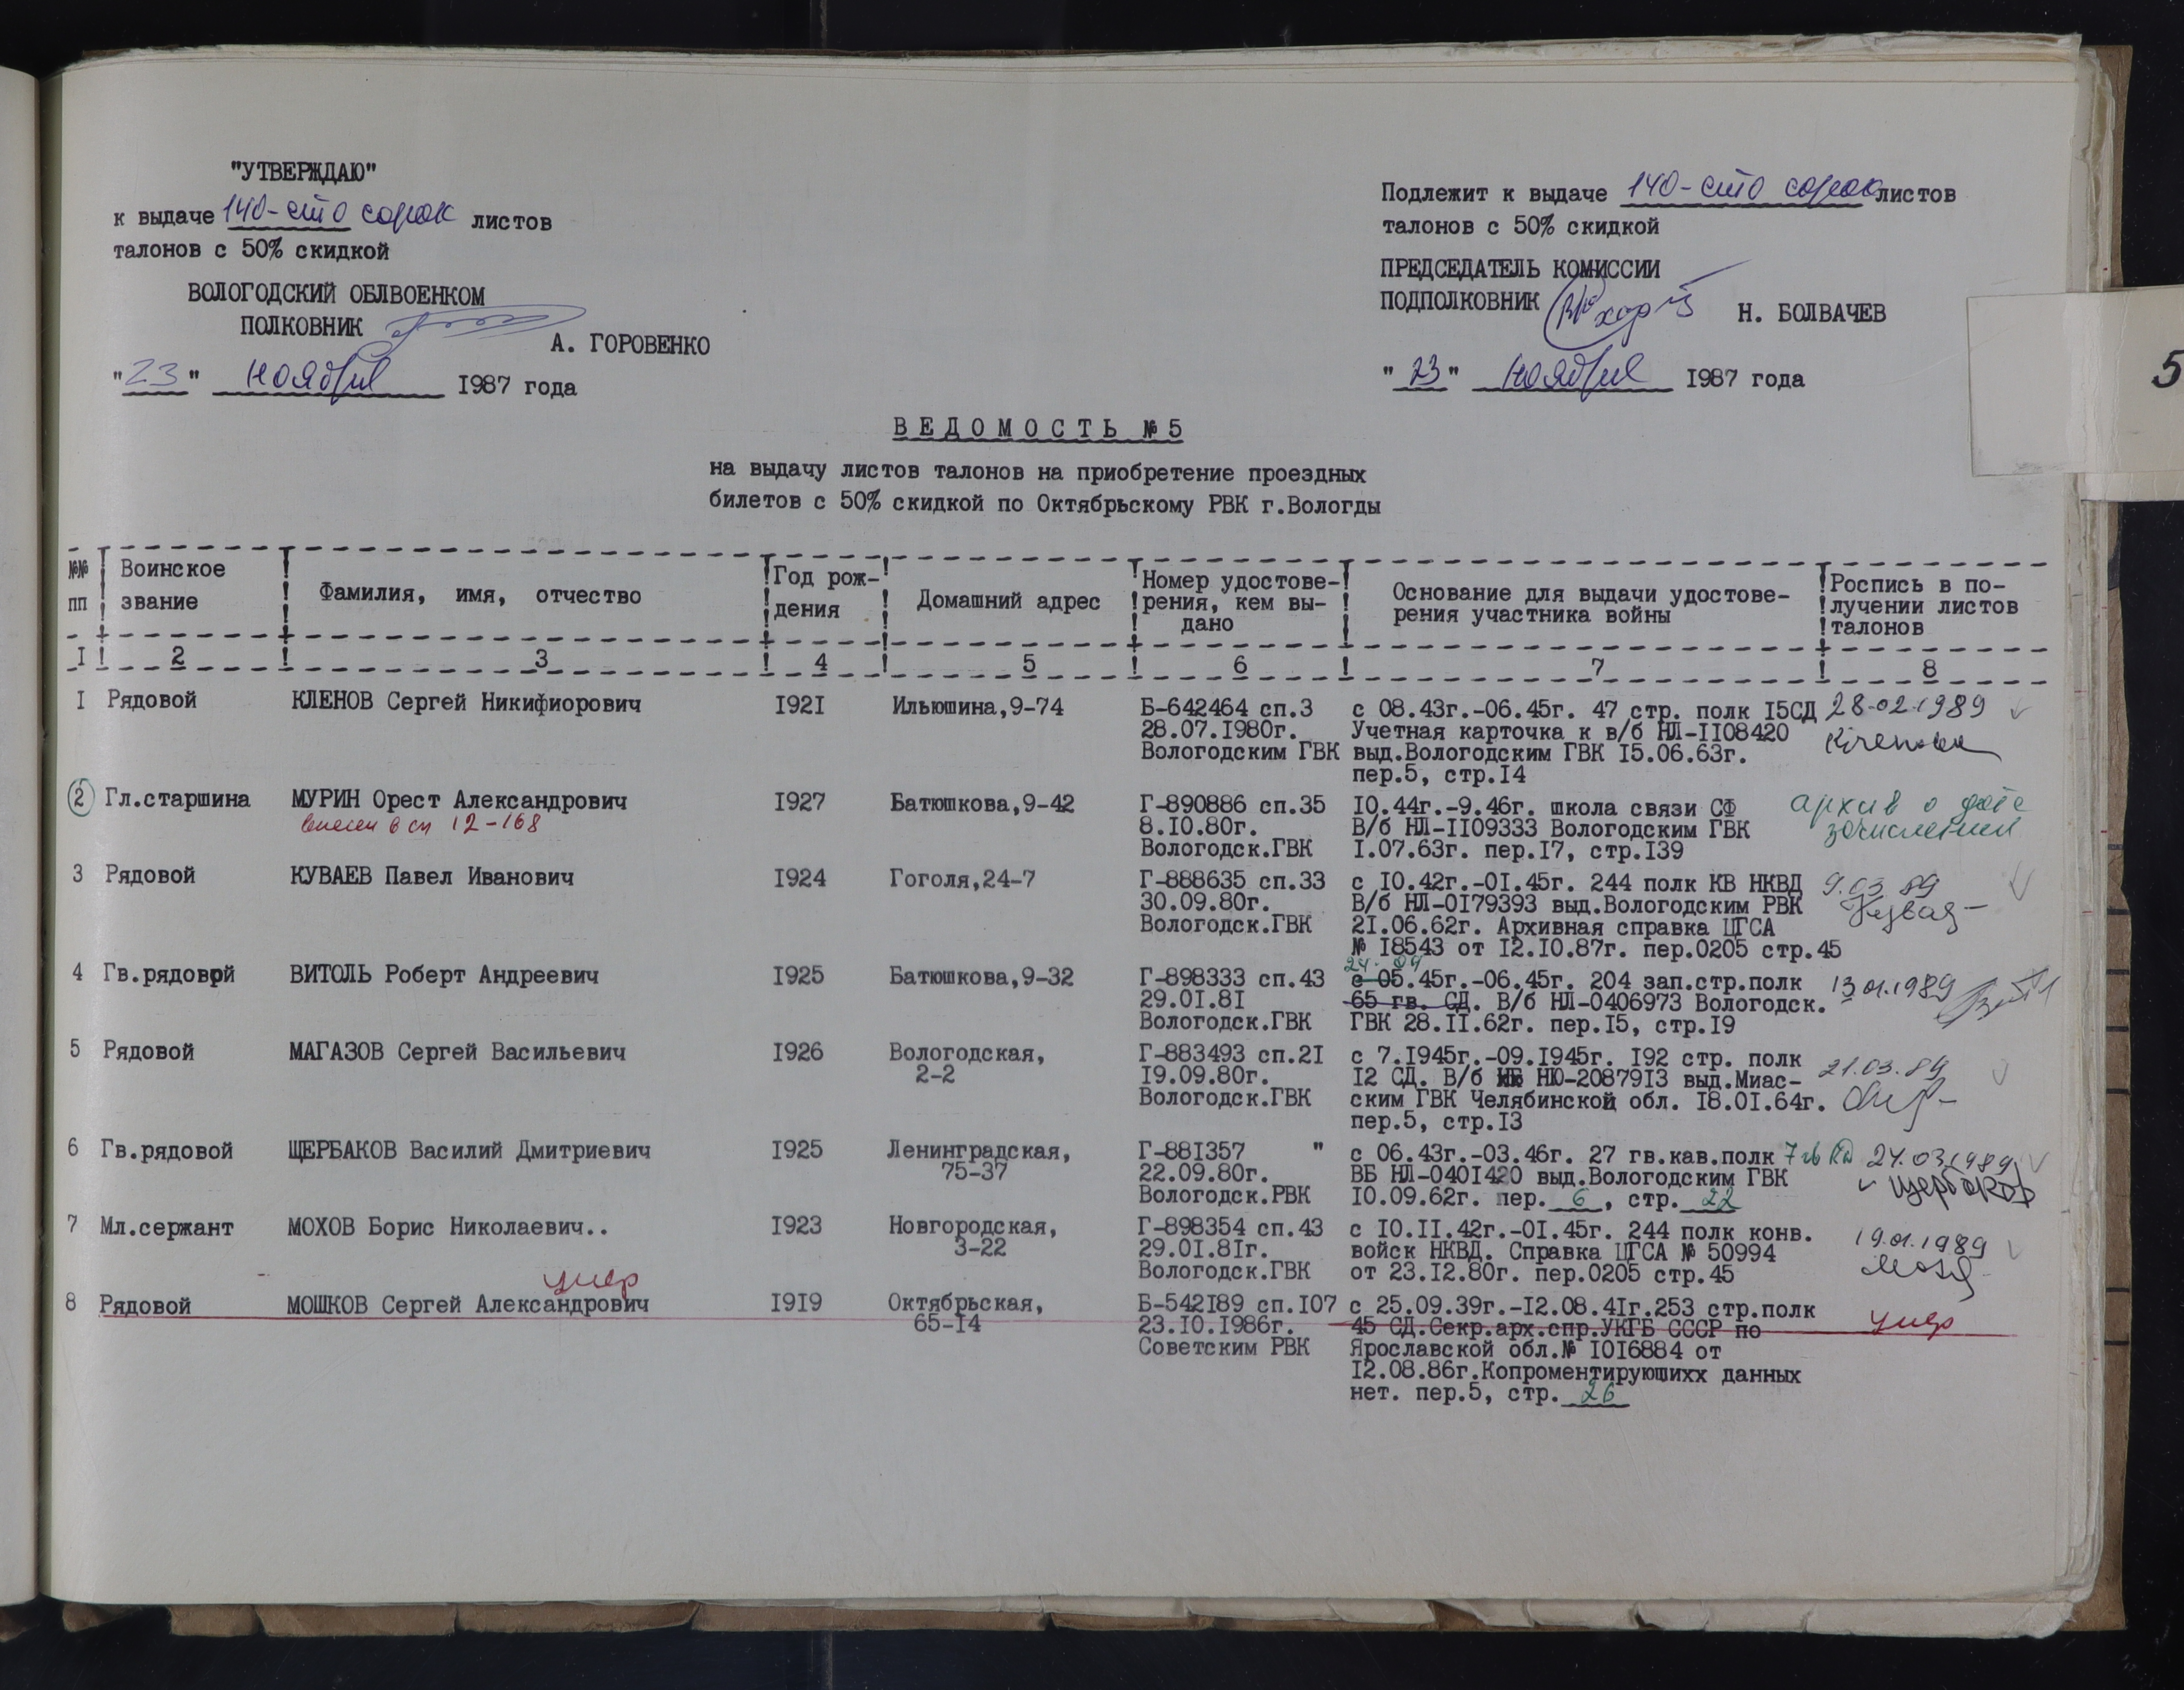 "УТВЕРЖДАЮ"
к выдаче 140-сто сорок листов
талонов с 50% скидкой
ВОЛОГОДСКИЙ ОБЛВОЕНКОМ
ПОЛКОВНИК
А. ГОРОВЕНКО
"23" ноября 1987 года
Подлежит к выдаче 140-сто сорок листов
талонов с 50% скидкой
ПРЕДСЕДАТЕЛЬ КОМИССИИ
ПОДПОЛКОВНИК Н. БОЛВАЧЕВ
"23" ноября 1987 года
5
ВЕДОМОСТЬ №5
на выдачу листов талонов на приобретение проездных
билетов с 50% скидкой по Октябрьскому РВК г.Вологды
№№ пп
Воинское звание
Фамилия, имя, отчество
Год рож-
дения
Домашний адрес
Номер удостове-
рения, кем вы-
дано
Основание для выдачи удостове-
рения участника войны
Роспись в по-
лучении листов
талонов
I 2 3 4 5 6 7 8
I Рядовой КЛЕНОВ Сергей Никифиорович I92I Ильюшина,9-74 Б-642464 сп.3 с 08.43г.-06.45г. 47 стр. полк I5СД 28.02.1989
28.07.I980г. Учетная карточка к в/б НЛ-II08420
Вологодским ГВК выд.Вологодским ГВК I5.06.63г.
пер.5, стр.I4
2 Гл.старшина МУРИН Орест Александрович I927 Батюшкова,9-42 Г-890886 сп.35 I0.44г.-9.46г. школа связи СФ архив о дате
внесен в сп 12-168 8.I0.80г. В/б НЛ-II09333 Вологодским ГВК зачисления
Вологодск.ГВК I.07.63г. пер.I7, стр.I39
3 Рядовой КУВАЕВ Павел Иванович I924 Гоголя,24-7 Г-888635 сп.33 с I0.42г.-0I.45г. 244 полк КВ НКВД 9.03 89
30.09.80г. В/б НЛ-0I79393 выд.Вологодским РВК
Вологодск.ГВК 2I.06.62г. Архивная справка ЦГСА
№ I8543 от I2.I0.87г. пер.0205 стр.45
24. 04
4 Гв.рядоврй ВИТОЛЬ Роберт Андреевич I925 Батюшкова,9-32 Г-898333 сп.43 с 05.45г.-06.45г. 204 зап.стр.полк 13.01.1989
29.0I.8I 65 гв. СД. В/б НЛ-0406973 Вологодск.
Вологодск.ГВК ГВК 28.II.62г. пер.I5, стр.I9
5 Рядовой МАГАЗОВ Сергей Васильевич I926 Вологодская, Г-883493 сп.2I с 7.I945г.-09.I945г. I92 стр. полк 21.03.89
2-2 I9.09.80г. I2 СД. В/б НЮ-20879I3 выд.Миас-
Вологодск.ГВК ским ГВК Челябинской обл. I8.0I.64г.
пер.5, стр.I3
6 Гв.рядовой ЩЕРБАКОВ Василий Дмитриевич I925 Ленинградская, Г-88I357 " с 06.43г.-03.46г. 27 гв.кав.полк 7 гв КД 24.03.1989
75-37 22.09.80г. ВБ НЛ-040I420 выд.Вологодским ГВК Щербаков
Вологодск.РВК I0.09.62г. пер. 6, стр. 22
7 Мл.сержант МОХОВ Борис Николаевич.. I923 Новгородская, Г-898354 сп.43 с I0.II.42г.-0I.45г. 244 полк конв. 19.01.1989
3-22 29.0I.8Iг. войск НКВД. Справка ЦГСА № 50994
Вологодск.ГВК от 23.I2.80г. пер.0205 стр.45
умер
8 Рядовой МОШКОВ Сергей Александрович I9I9 Октябрьская, Б-542I89 сп.I07 с 25.09.39г.-I2.08.4Iг.253 стр.полк умер
65-I4 23.I0.I986г. 45 СД.Секр.арх.спр.УКГБ СССР по
Советским РВК Ярославской обл.№ I0I6884 от
I2.08.86г.Копроментируюшихх данных
нет. пер.5, стр. 26